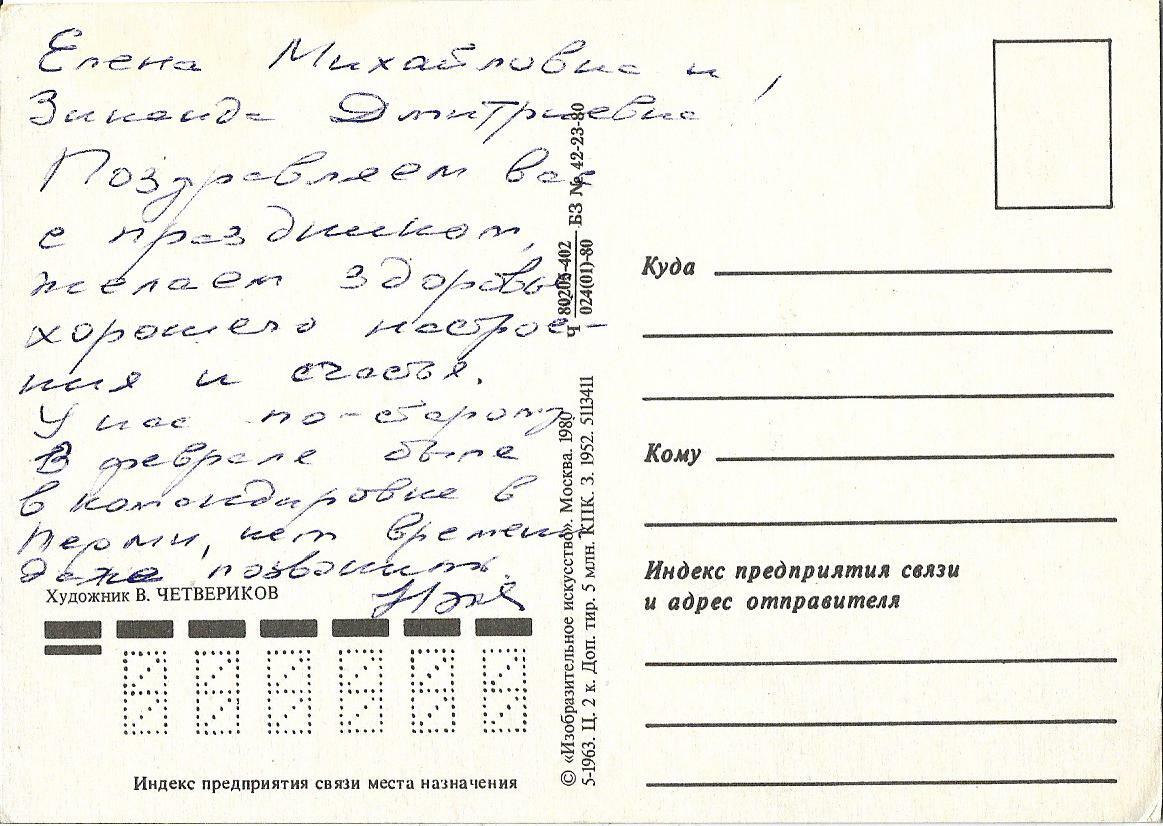 Елена Михайловна и
Зинаида Дмитриевна!
Поздравляем вас
с праздником,
желаем здоровье
хорошего настрое-
ния и счастья.
У нас по-старому
В феврале была
в командировке в
Перми, нет времени
даже позвонить.
Художник В. ЧЕТВЕРИКОВ
Индекс предприятия связи места назначения
© «Изобразительное искусство». Москва. 1980
5-1963. Ц. 2 к. Доп. тир. 5 млн. КПК. З. 1952. 5113411
Ч 80205-402 БЗ № 42-23-80
024(01)-80
Куда
Кому
Индекс предприятия связи
и адрес отправителя